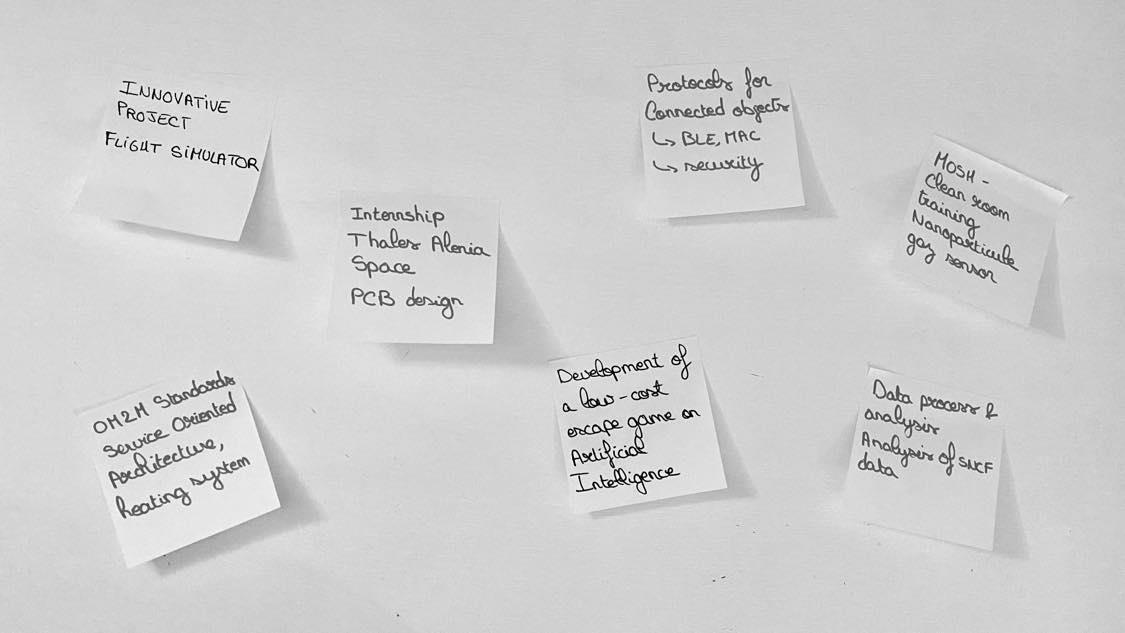 INNOVATIVE
PROJECT
FLIGHT SIMULATOR
Internship
Thales Alenia
Space
PCB design
Protocols for
Connected objects
↳ BLE, MAC
↳ security
MOSH -
Clean room
training
Nanoparticule
gaz sensor
OM2M Standards
Service Oriented
Architecture,
heating system
Development of
a low-cost
escape game on
Artificial
Intelligence
Data process &
analysis
Analysis of SNCF
data